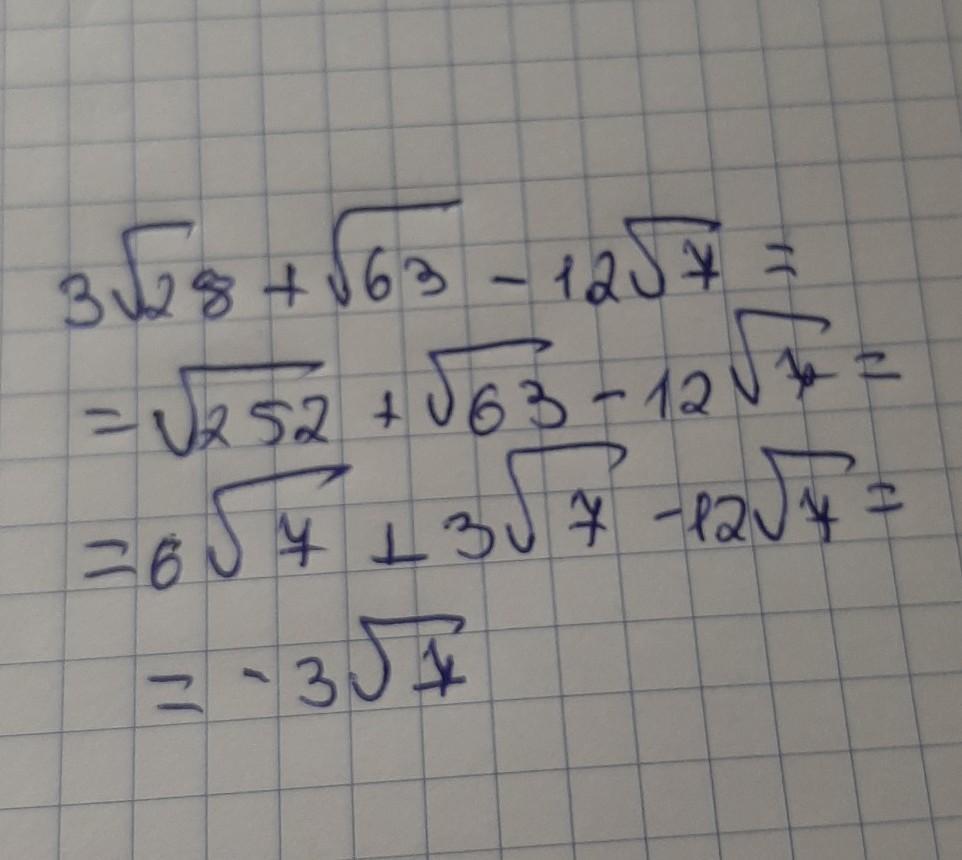 3√28 + √63 - 12√7 =
= √252 + √63 - 12√7 =
= 6√7 + 3√7 - 12√7 =
= - 3√7